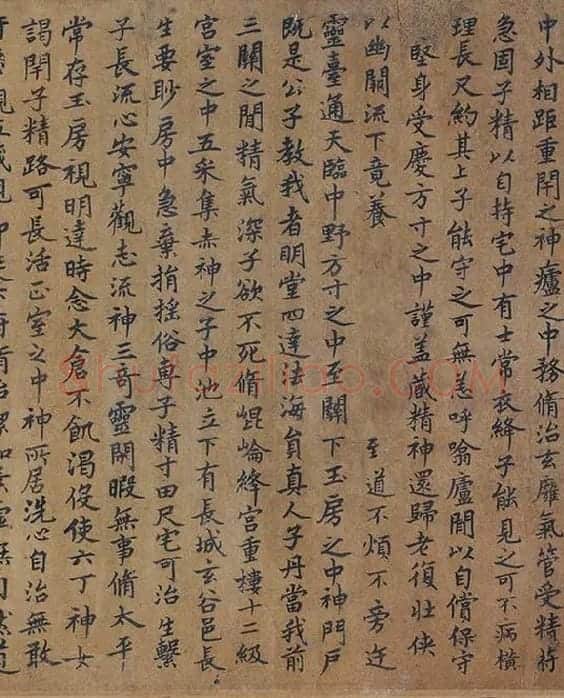 中外相距重閇之神廬之中務脩治玄膺氣管受精苻
急固子精以自持宅中有士常衣絳子能見之可不病橫
理長尺約其上子能守之可無恙呼噏廬閒以自償保守
堅身受慶方寸之中謹盖藏精神還歸老復壯俠
以幽闕流下竟養 至道不煩不旁迕
靈臺通天臨中野方寸之中至關下玉房之中神門戶
既是公子教我者明堂四達法海員真人子丹當我前
三關之閒精氣深子欲不死脩崐崘絳宮重樓十二級
宮室之中五采集赤神之子中池立下有長城玄谷邑長
生要眇房中急棄捐搖俗專子精寸田尺宅可治生繫
子長流心安寧觀志流神三奇靈閒暇無事脩太平
常存玉房視明達時念大倉不飢渴伇使六丁神女
謁閇子精路可長活正室之中神所居洗心自治無敢